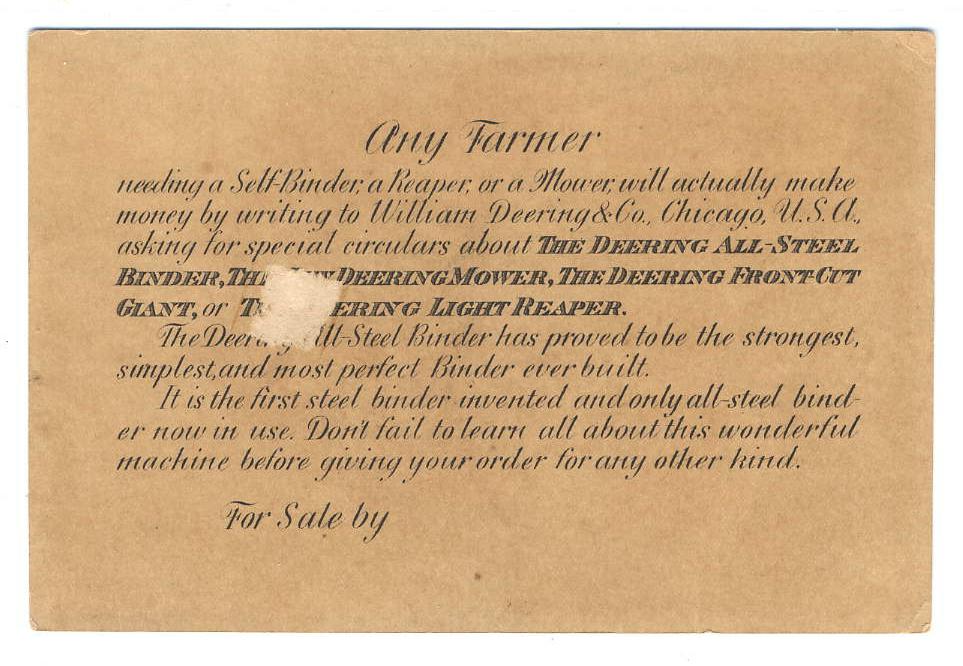 Any Farmer
needing a Self-Binder, a Reaper, or a Mower, will actually make
money by writing to William Deering & Co., Chicago, U.S.A.,
asking for special circulars about THE DEERING ALL-STEEL
BINDER, THE DEERING MOWER, THE DEERING FRONT-CUT
GIANT, or LIGHT REAPER.
The Deering All-Steel Binder has proved to be the strongest,
simplest, and most perfect Binder ever built.
It is the first steel binder invented and only all-steel bind-
er now in use. Don't fail to learn all about this wonderful
machine before giving your order for any other kind.
For Sale by